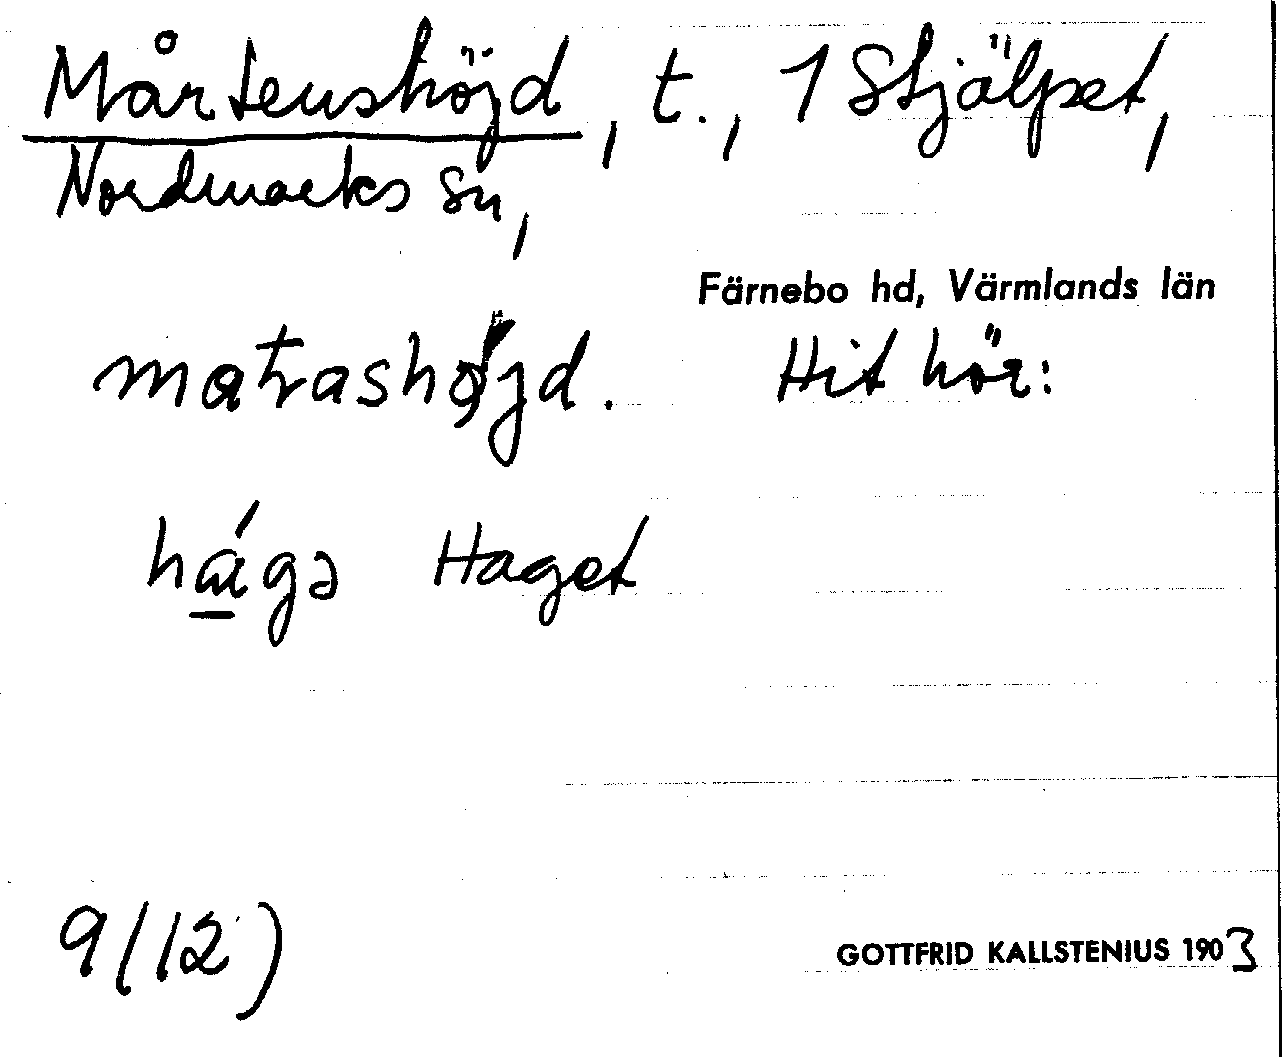 Mårtenshöjd, t., 1 Stjälpet,
Nordmarks sn,
Färnebo hd, Värmlands län
matrashǿjd. Hit hör:
há̱gə Haget
9(12)
GOTTFRID KALLSTENIUS 1903